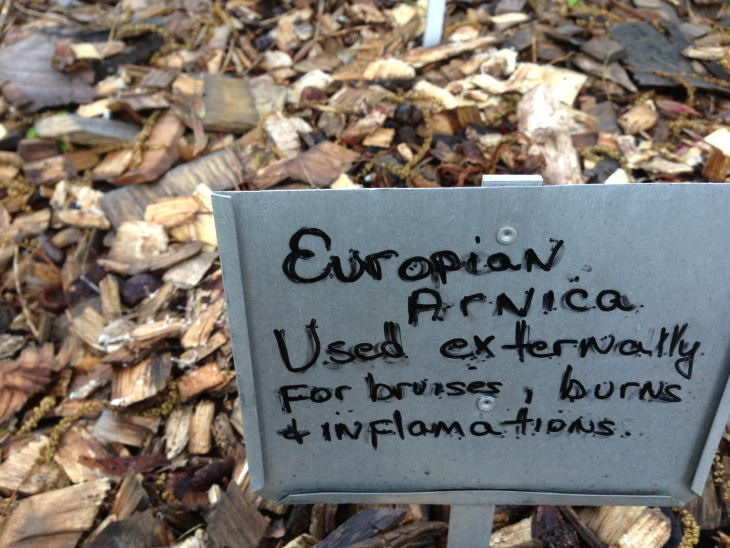 Europian
Arnica
Used externally
for bruises, burns
& inflamations.